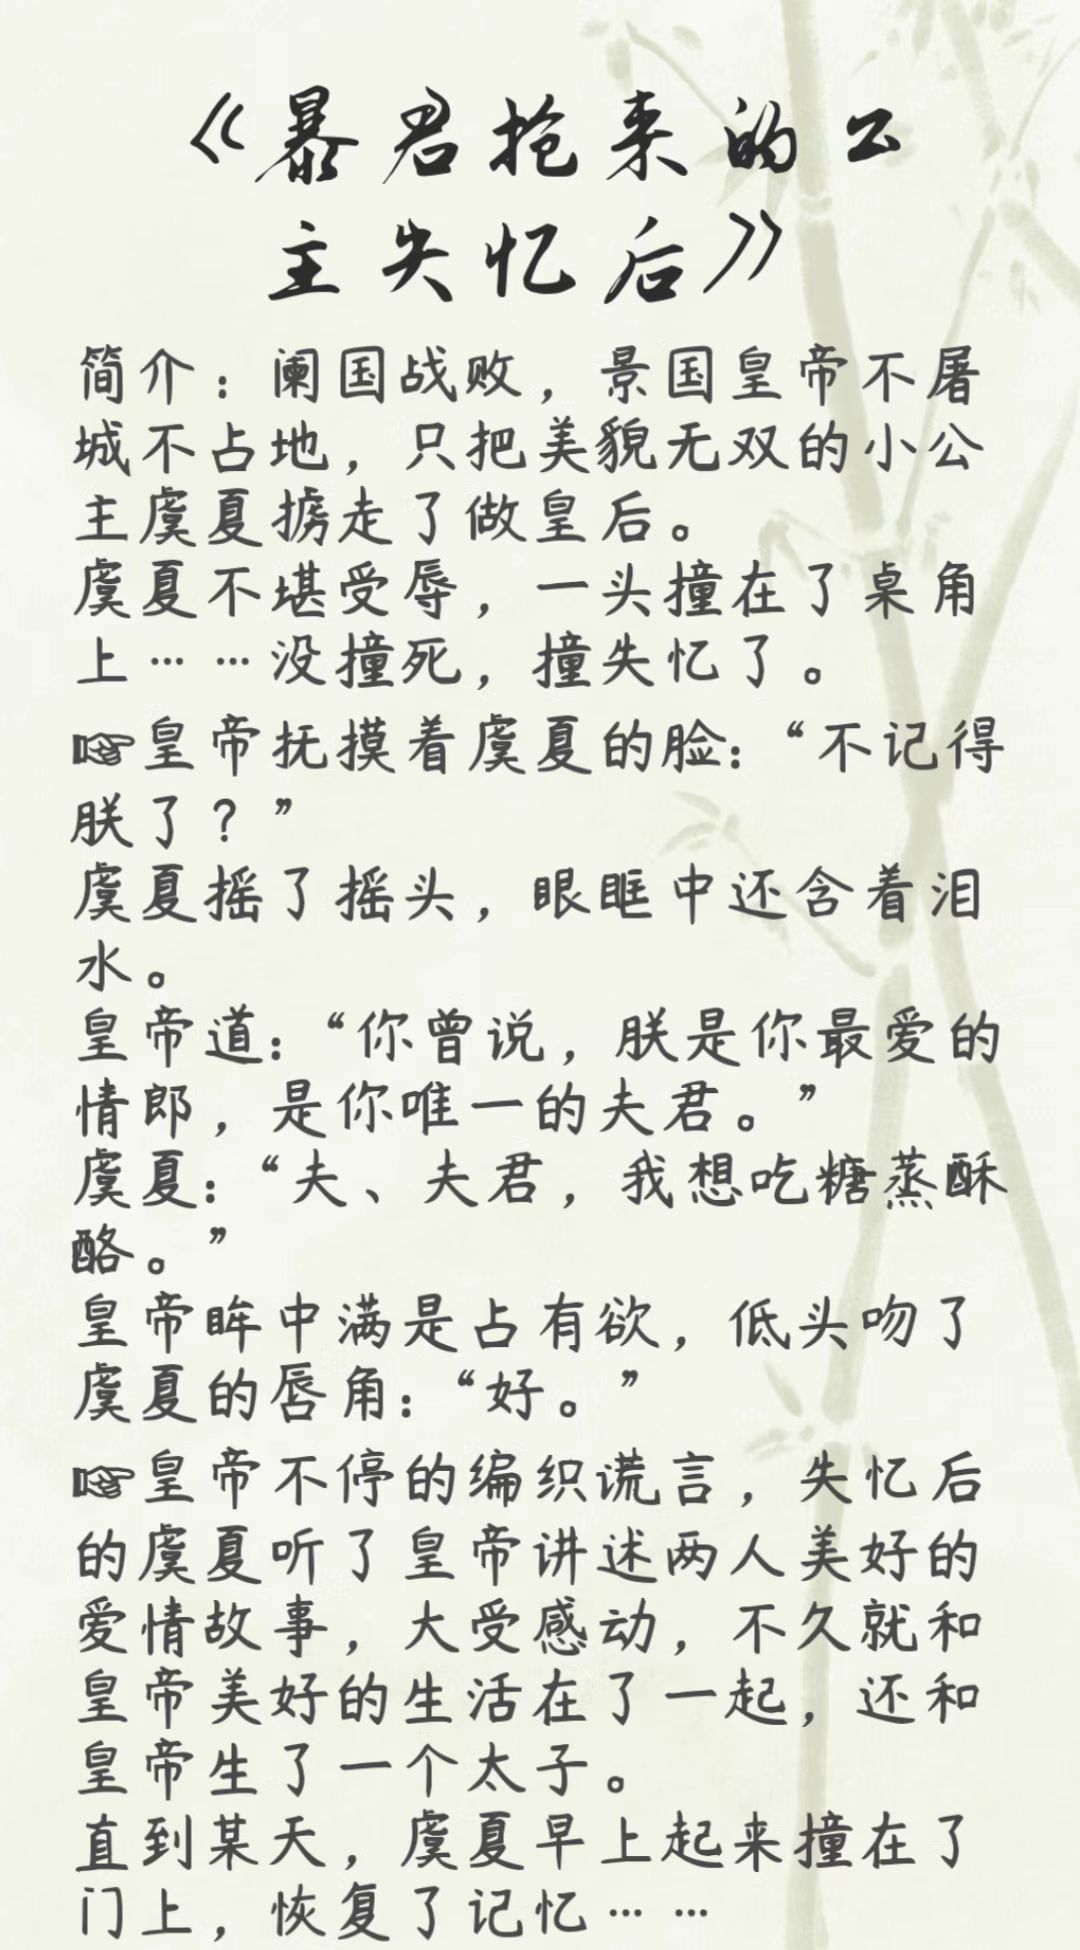 《暴君抢来的公
主失忆后》
简介：阑国战败，景国皇帝不屠
城不占地，只把美貌无双的小公
主虞夏掳走了做皇后。
虞夏不堪受辱，一头撞在了桌角
上……没撞死，撞失忆了。
☞皇帝抚摸着虞夏的脸：“不记得
朕了？”
虞夏摇了摇头，眼眶中还含着泪
水。
皇帝道：“你曾说，朕是你最爱的
情郎，是你唯一的夫君。”
虞夏：“夫、夫君，我想吃糖蒸酥
酪。”
皇帝眸中满是占有欲，低头吻了
虞夏的唇角：“好。”
☞皇帝不停的编织谎言，失忆后
的虞夏听了皇帝讲述两人美好的
爱情故事，大受感动，不久就和
皇帝美好的生活在了一起，还和
皇帝生了一个太子。
直到某天，虞夏早上起来撞在了
门上，恢复了记忆……